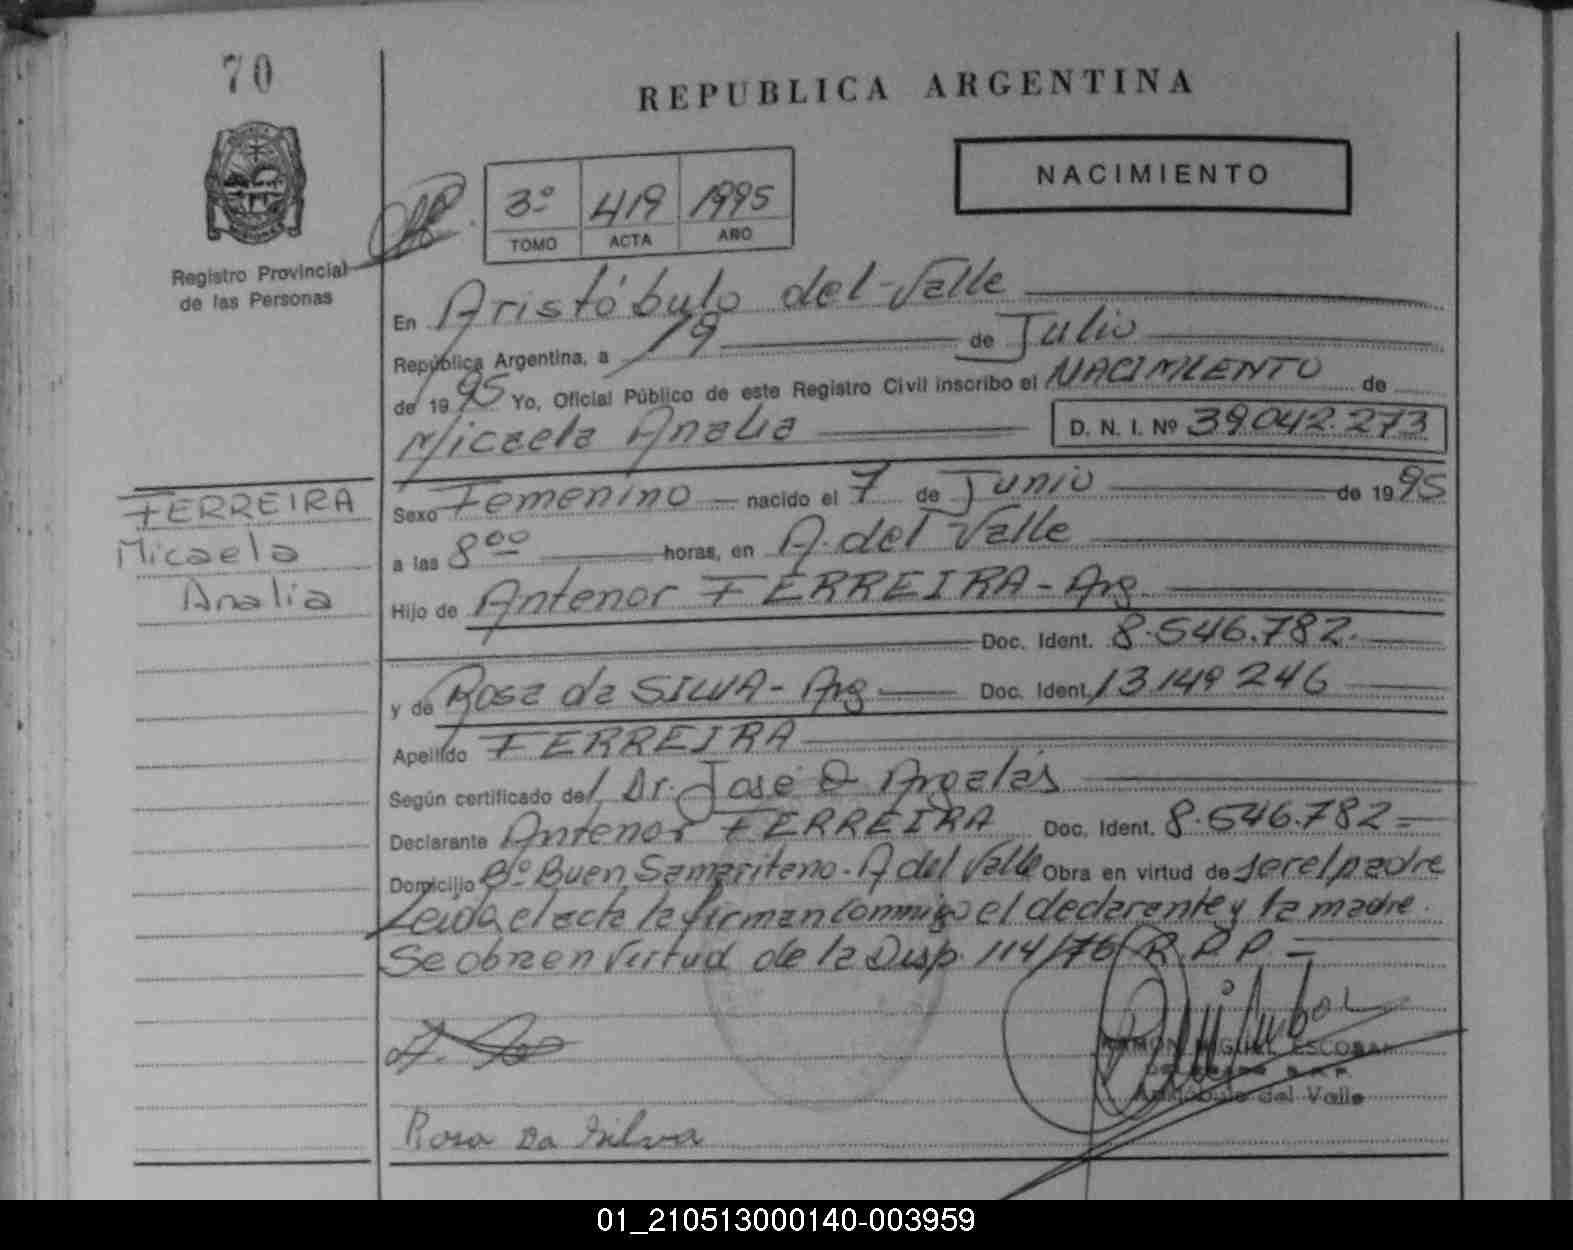 70
REPUBLICA ARGENTINA
NACIMIENTO
3º 419 1995
TOMO ACTA AÑO
Registro Provincial
de las Personas
En Aristóbulo del Valle
República Argentina, a 19 de Julio
de 1995 Yo, Oficial Público de este Registro Civil inscribo el NACIMIENTO de
Micaela Analia D. N. I. Nº 39.042.273
FERREIRA
Micaela
Analia
Sexo Femenino nacido el 7 de Junio de 1995
a las 8 00 horas, en A. del Valle
Hijo de Antenor FERREIRA - Arg.
Doc. Ident. 8.546.782.
y de Rosa da SILVA - Arg Doc. Ident. 13.149 246
Apellido FERREIRA
Según certificado del Dr. José O
Declarante Antenor FERREIRA Doc. Ident. 8.546.782 =
Domicilio Bº Buen Samaritano - A del Valle Obra en virtud de ser el padre
Leida el acta la firman conmigo el declarante y la madre.
Se obra en virtud de la Disp. 114/76 R.P.P. =
RAMON MIGUEL ESCOBAR
Aristóbulo del Valle
Rosa Da Silva
01_210513000140-003959